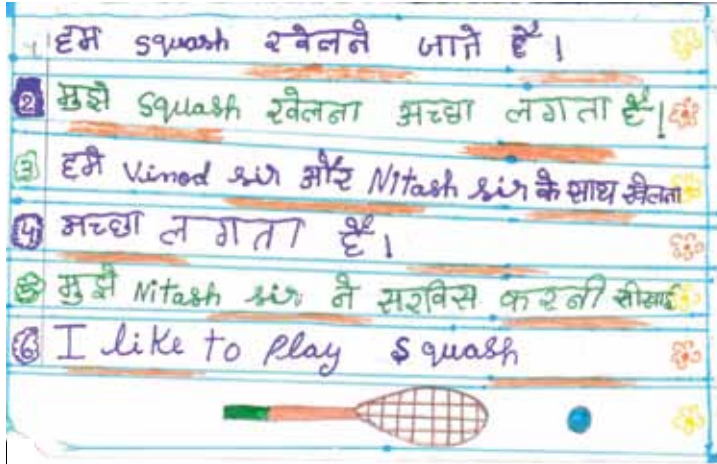 1 हम squash खेलने जाते हैं।
2 मुझे squash खेलना अच्छा लगता है।
3 हमे Vinod sir और Nitash sir के साथ खेलना
4 अच्छा लगता है।
5 मुझे Nitash sir ने सरविस करनी सीखाई
6 I like to Play squash